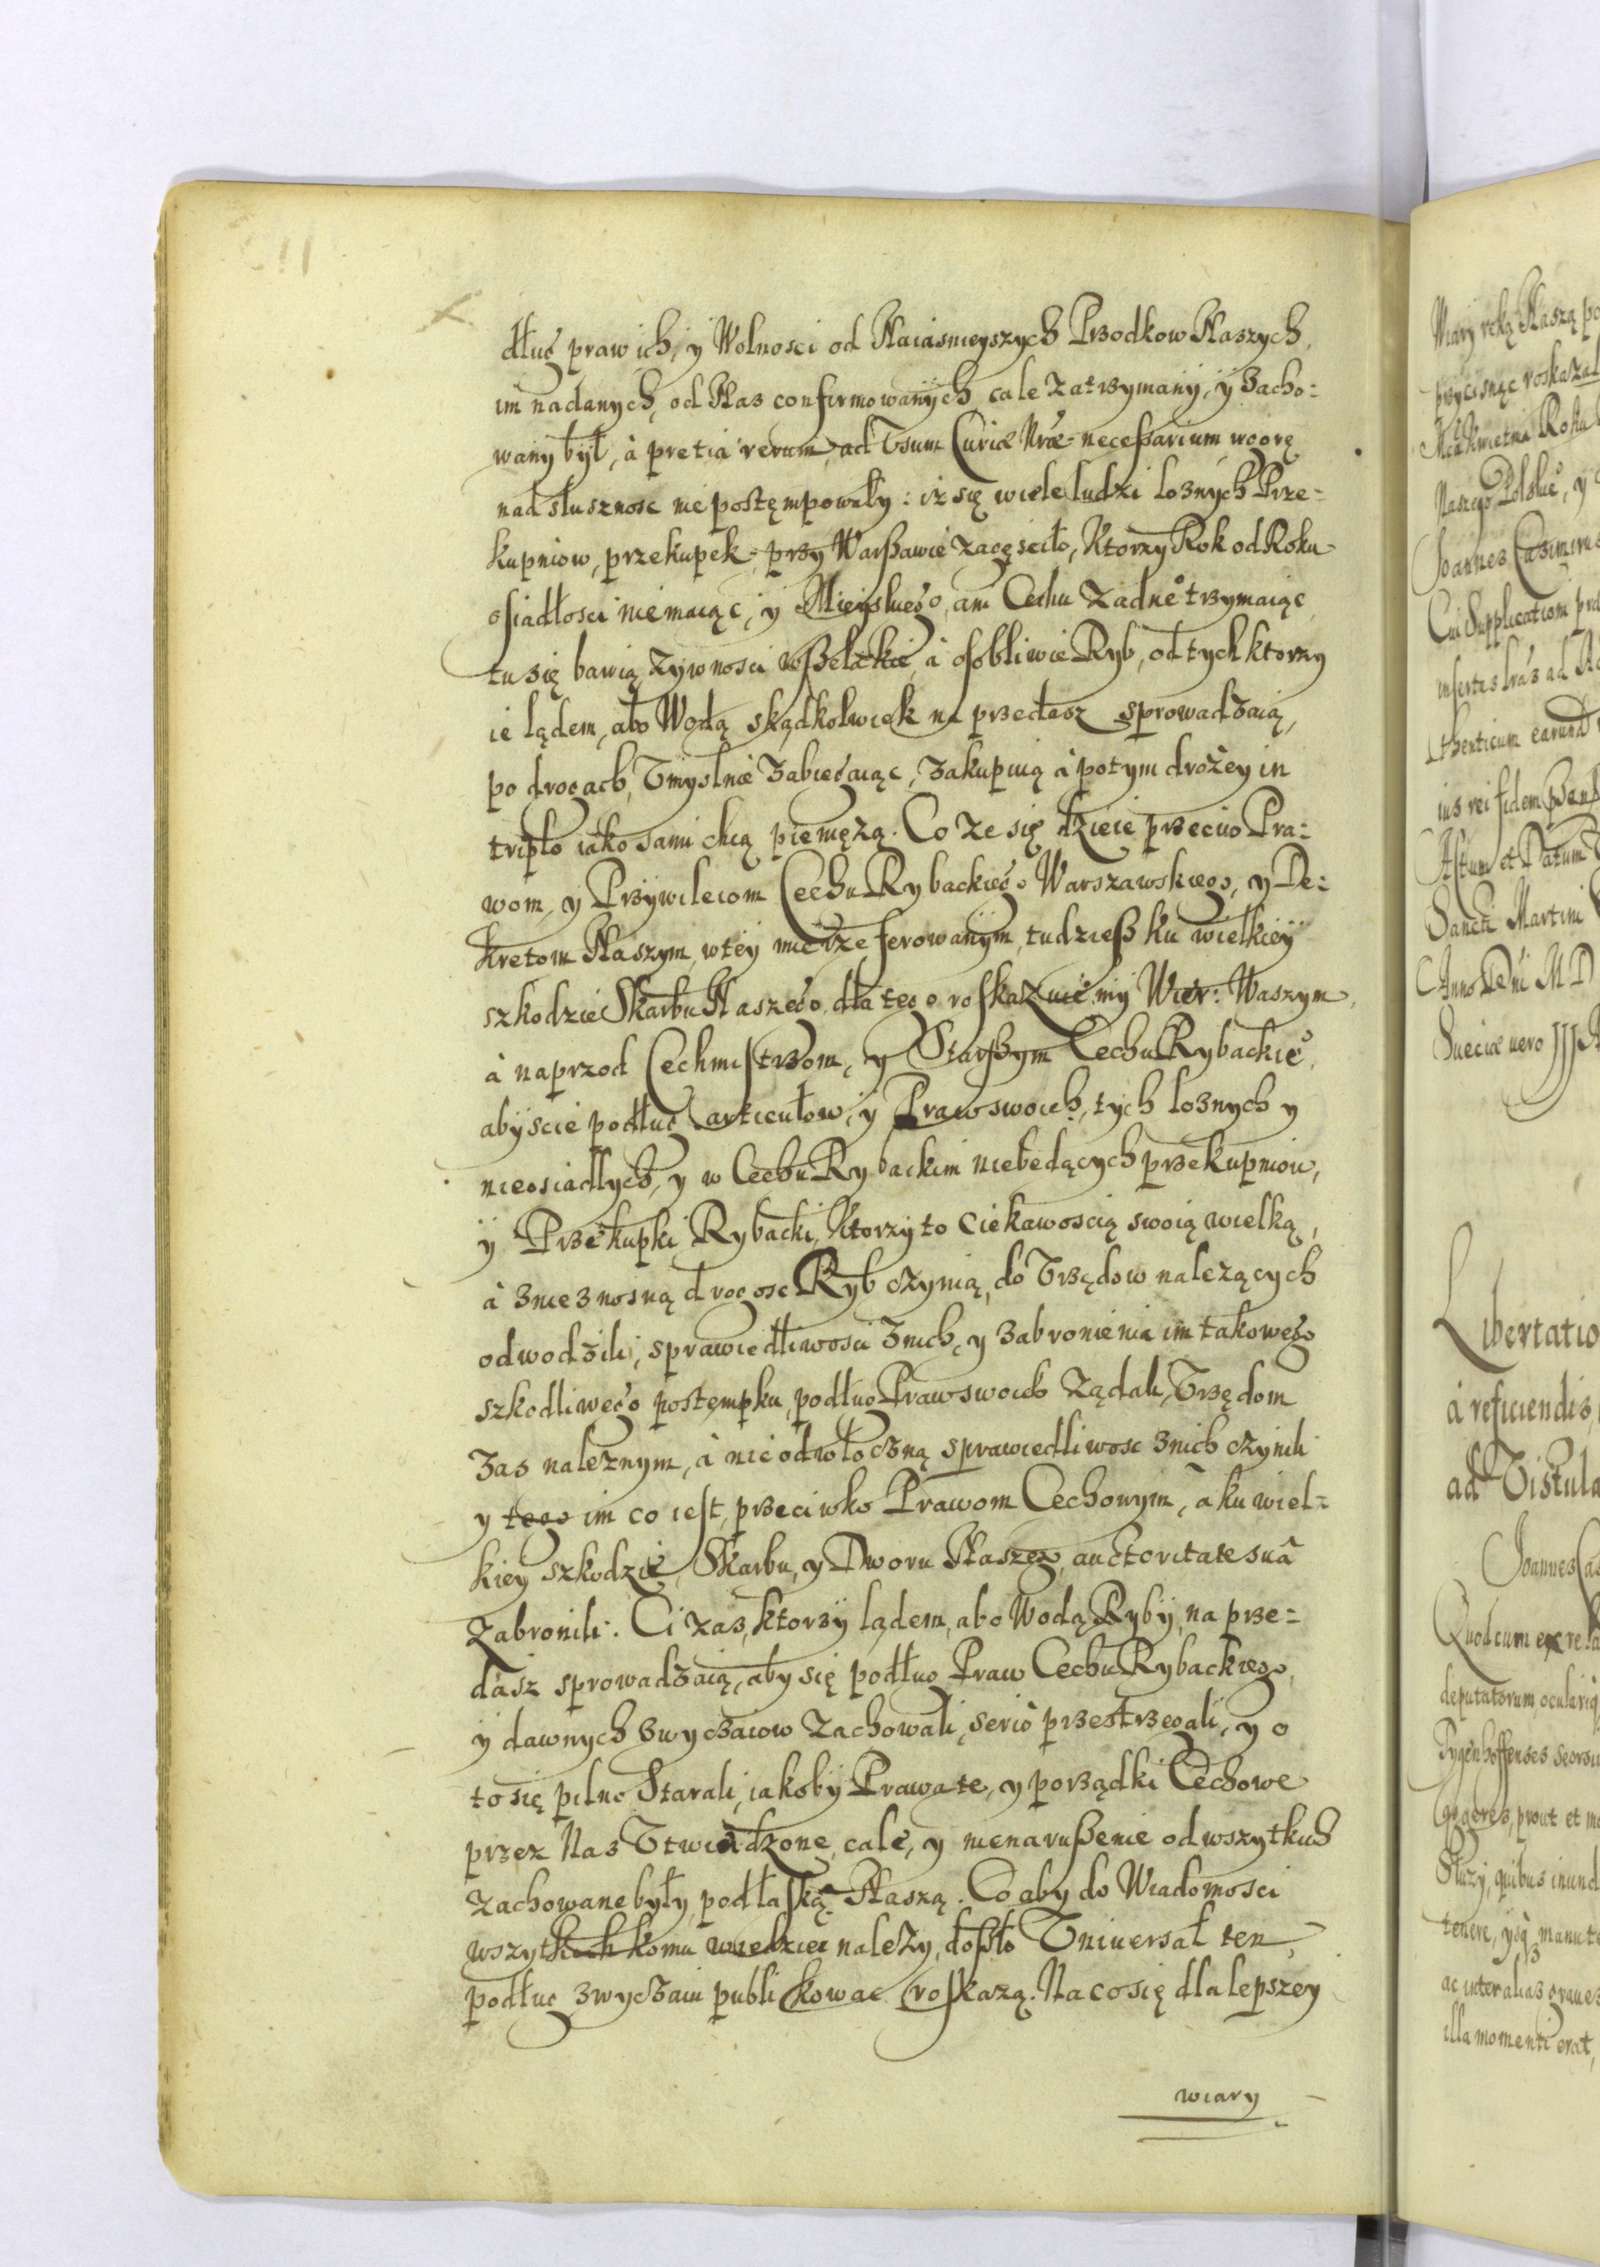 dług praw ich, y Wolnosci od Naiasnieyszych Przodkow Naszych,
im nadanych, od Nas confirmowanych cale zatrzymany, y zacho:
wany był, à pretia rerum ad Usum Curiæ Nræ necessarium wgorę
nad słusznosc nie postęmpowały: iz się wiele ludzi loznych Prze=
kupniow, przekupek, przy Warßawie zagęsciło, Ktorzy Rok od Roku
osiadłosci niemaiąc, y Mieyskiego, ani Cechu zadne° trzymaiąc
tu się bawią, zywnosci wßelakie, à osobliwie Ryb, od tych ktorzy
ie lądem, abo Wodą skądkolwiek na przedasz sprowadzaią,
po drogach, Umyslnie zabiegaiąc, zakupuią à potym drożey in
triplo iako sami chcą pieniężą. Co ze się dzieie przeciwo Pra=
wom, y Przywileiom Cechu Rybackiego Warszawskiego, y De=
kretom Naszym, wtey mierze ferowanym, tudzieß ku wielkiey
szkodzie Skarbu Naszego, dla tego roskazuiemy Wier: Waszym,
à naprzod Cechmistrzom, y Starßym Cechu Rybackie°,
abyscie podług articułow, y Praw swoich, tych loznych y
nieosiadłych, y w Cechu Rybackim niebędących przekupniow,
y Przekupki Rybacki, Ktorzy to Ciekawoscią swoią wielką,
à znieznosną drogosc Ryb czynią, do Urzędow nalezących
odwodzili, sprawiedliwosci znich, y zabronienia im takowego
szkodliwego postęmpku, podług Praw swoich Ządali, Urzędom
zas naleznym, à nieodwłoczną sprawiedliwosc znich czynili
y tego im co iest, przeciwko Prawom Cechowym, à ku wiel=
kiey szkodzie, Skarbu, y Dworu Naszego, auctoritate suâ
zabronili. Ci zas, ktorzy lądem, abo Wodą Ryby, na prze=
dasz sprowadzaią, aby się podług Praw Cechu Rybackiego,
y dawnych zwyczaiow zachowali, seriò przestrzegali, y o
to się pilno Starali, iakoby Prawa te, y porządki Cechowe
przez Nas Utwierdzone, cale, y nienarußenie od wszytkich
zachowane były, pod łaską Naszą. Co aby do Wiadomosci
wszytkich komu wiedziec nalezy, doßło Uniuersał ten,
podług zwyczaiu publikowac roskazą. Na co się dla lepszey
wiary
Wiary ręką Naszą
przycisnąc roskazal
Naszego Polskie°, y
Joannes Casimirus
Cui Supplicationi
insertas lras ad
thenticum earund
ius rei fidem
Actum et Datum
Sancti Martini
Anno Dni M D
Sueciæ uero III
Libertatio
à reficiendis
ad Vistula
Joannes Cas
Quod cum ex
deputatorum, oculariq
prout et
quibus inund
tenere, ysq manute
ac inter alias graues
illa momenti erat,